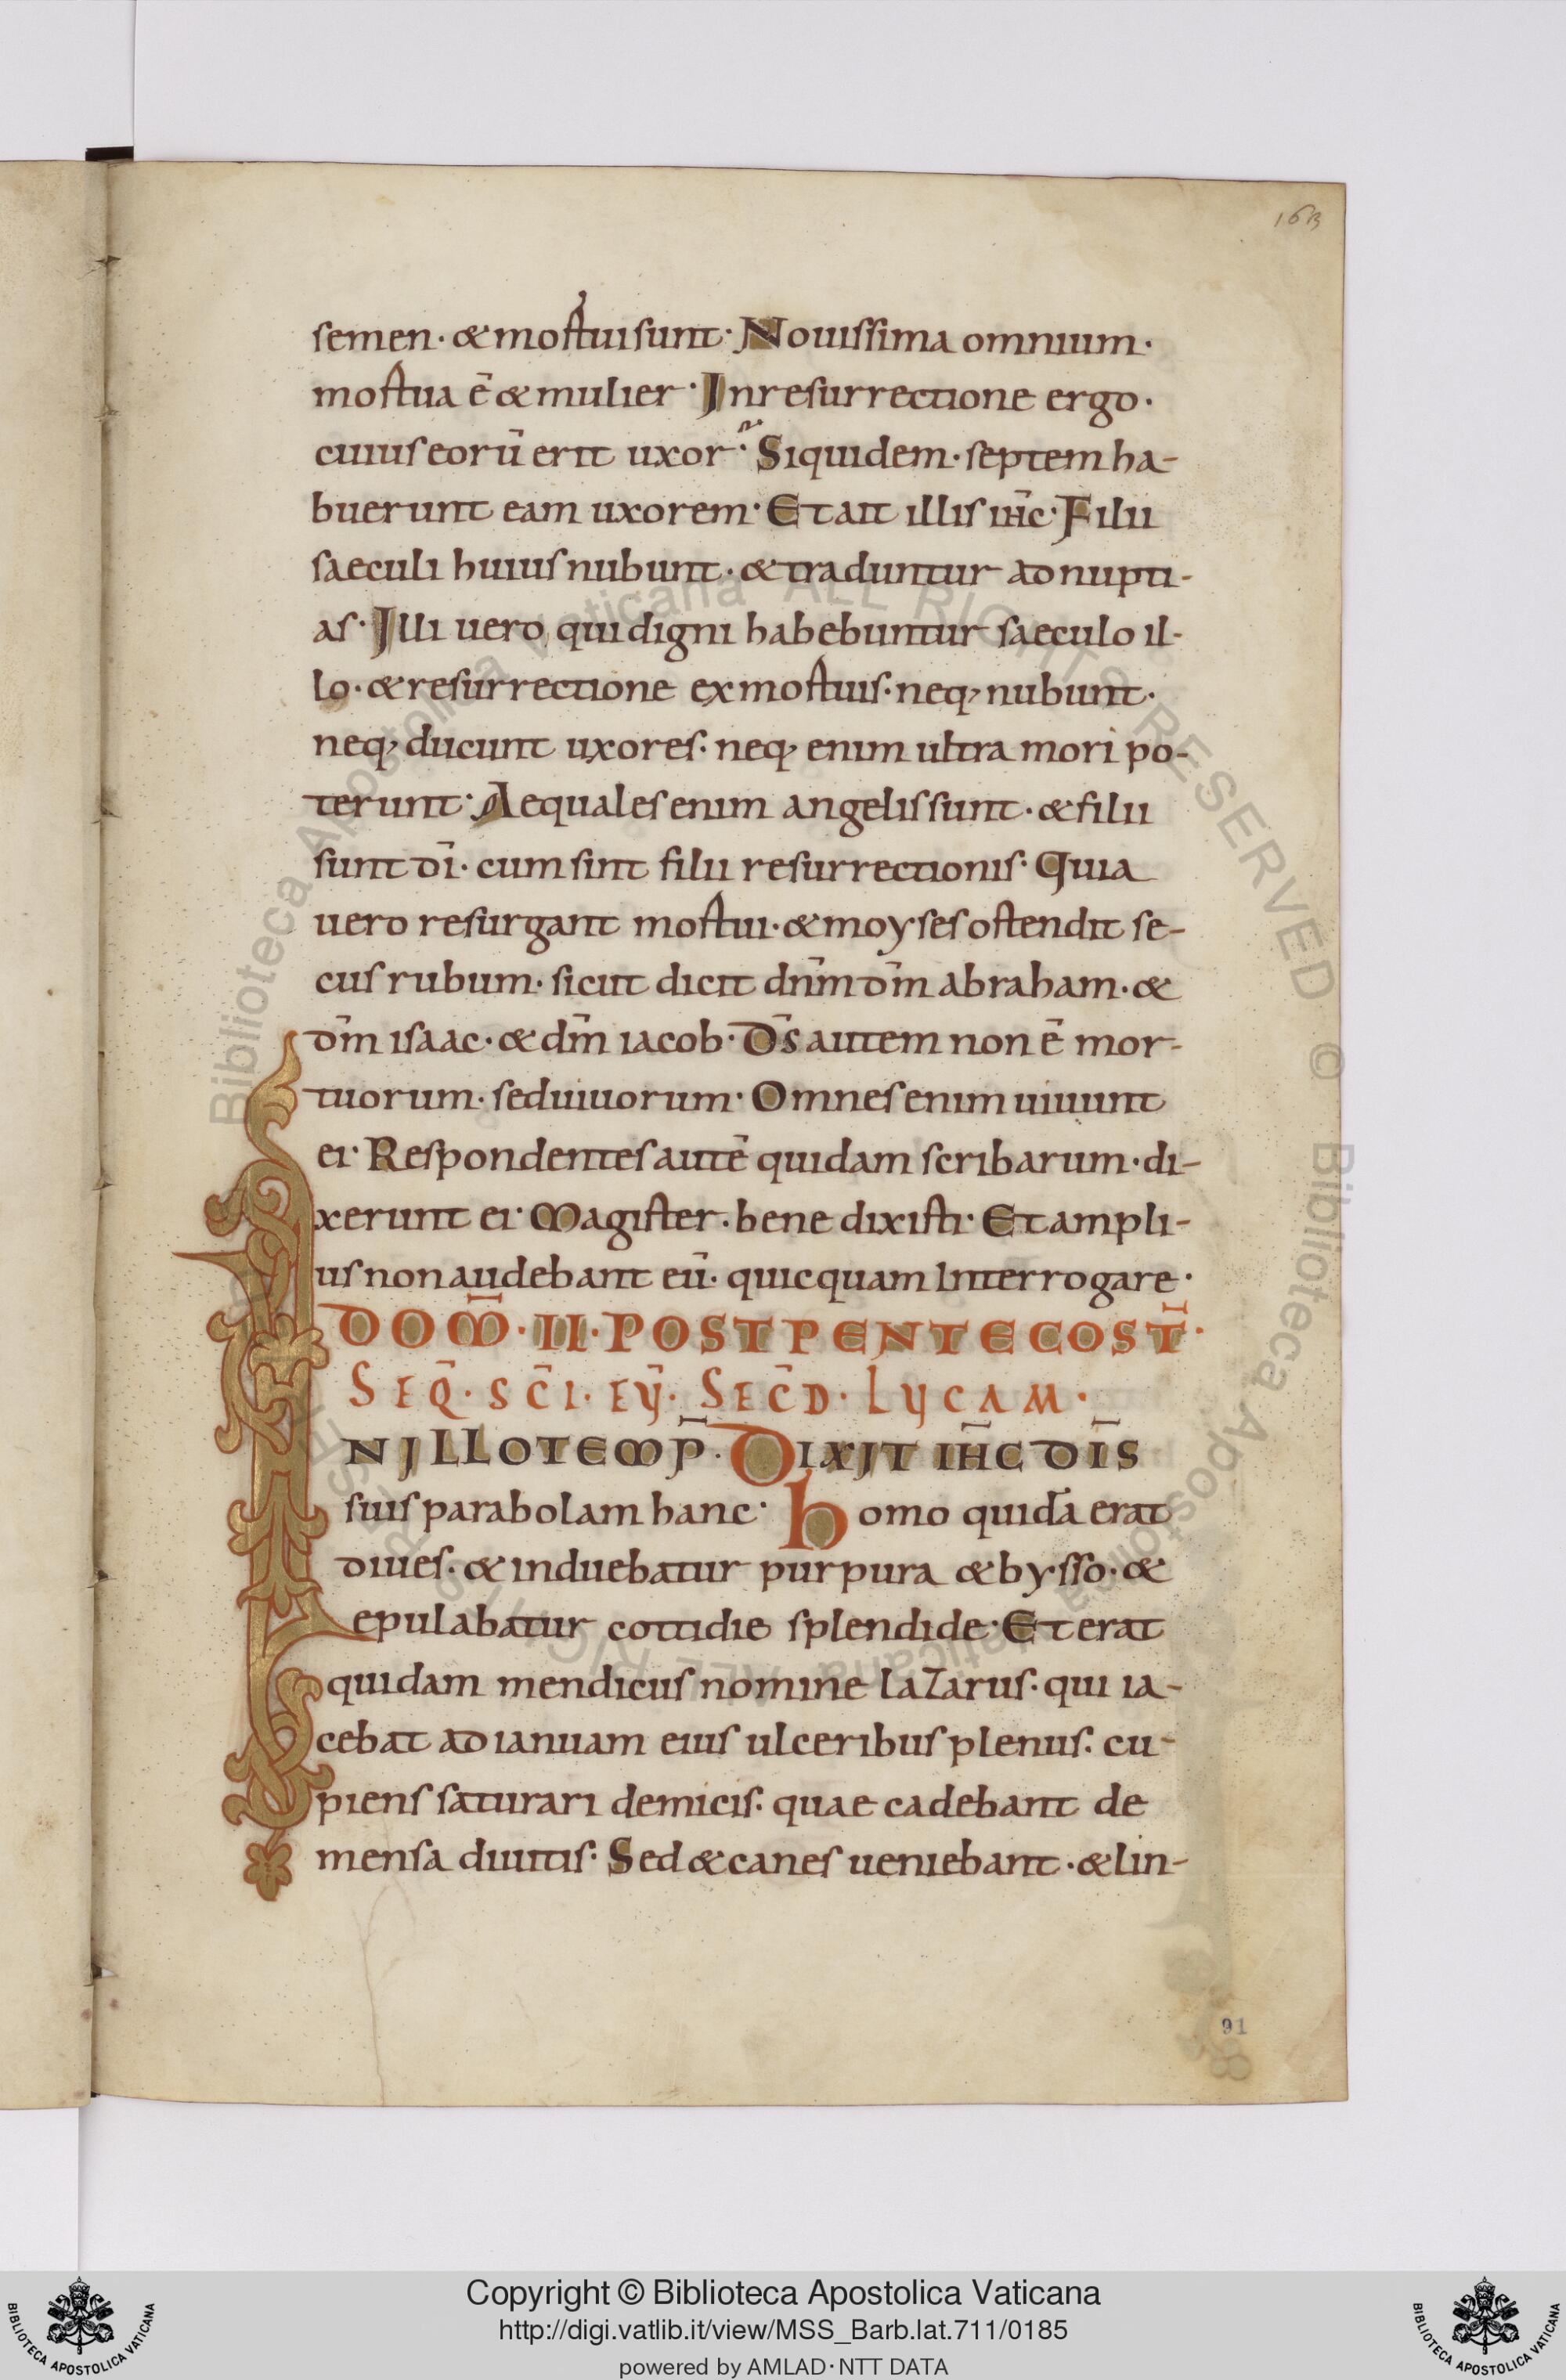 163
semen· & mortui sunt· Nouissima omnium·
mortua ē & mulier· In resurrectione ergo·
cuius eorū erit uxor· Siquidem· septem ha-
buerunt eam uxorem· Et ait illis ih̄c· Filii
saeculi huius nubunt· & traduntur ad nupti-
as· Illi uero qui digni habebuntur saeculo il-
lo· & resurrectione ex mortuis· neq; nubunt·
neq; ducunt uxores· neq; enim ultra mori po-
terunt· Aequales enim angelis sunt· & filii
sunt dī· cum sint filii resurrectionis· Quia
uero resurgant mortui· & moyses ostendit se-
cus rubum· sicut dicit dn̄m dm̄ abraham· &
dm̄ isaac· & dm̄ iacob· Ds̄ autem non ē mor-
tuorum· sed uiuorum· Omnes enim uiuunt
ei· Respondentes autē quidam scribarum· di-
xerunt ei· Magister· bene dixisti· Et ampli-
us non audebant eū· quicquam interrogare·
DOM̄· II· POST PENTECOST̄·
SEQ̄· SC̄I· EṼ· SEC̄D· LUCAM·
IN ILLO TEMP̄· DIXIT IH̄C DIS̄
suis parabolam hanc· homo quidā erat
diues· & induebatur purpura & bysso· &
epulabatur cottidie splendide· Et erat
quidam mendicus nomine lazarus· qui ia-
cebat ad ianuam eius ulceribus plenus· cu-
piens saturari de micis· quae cadebant de
mensa diuitis· Sed & canes ueniebant· & lin-
91
Copyright © Biblioteca Apostolica Vaticana
http://digi.vatlib.it/view/MSS_Barb.lat.711/0185
powered by AMLAD·NTT DATA